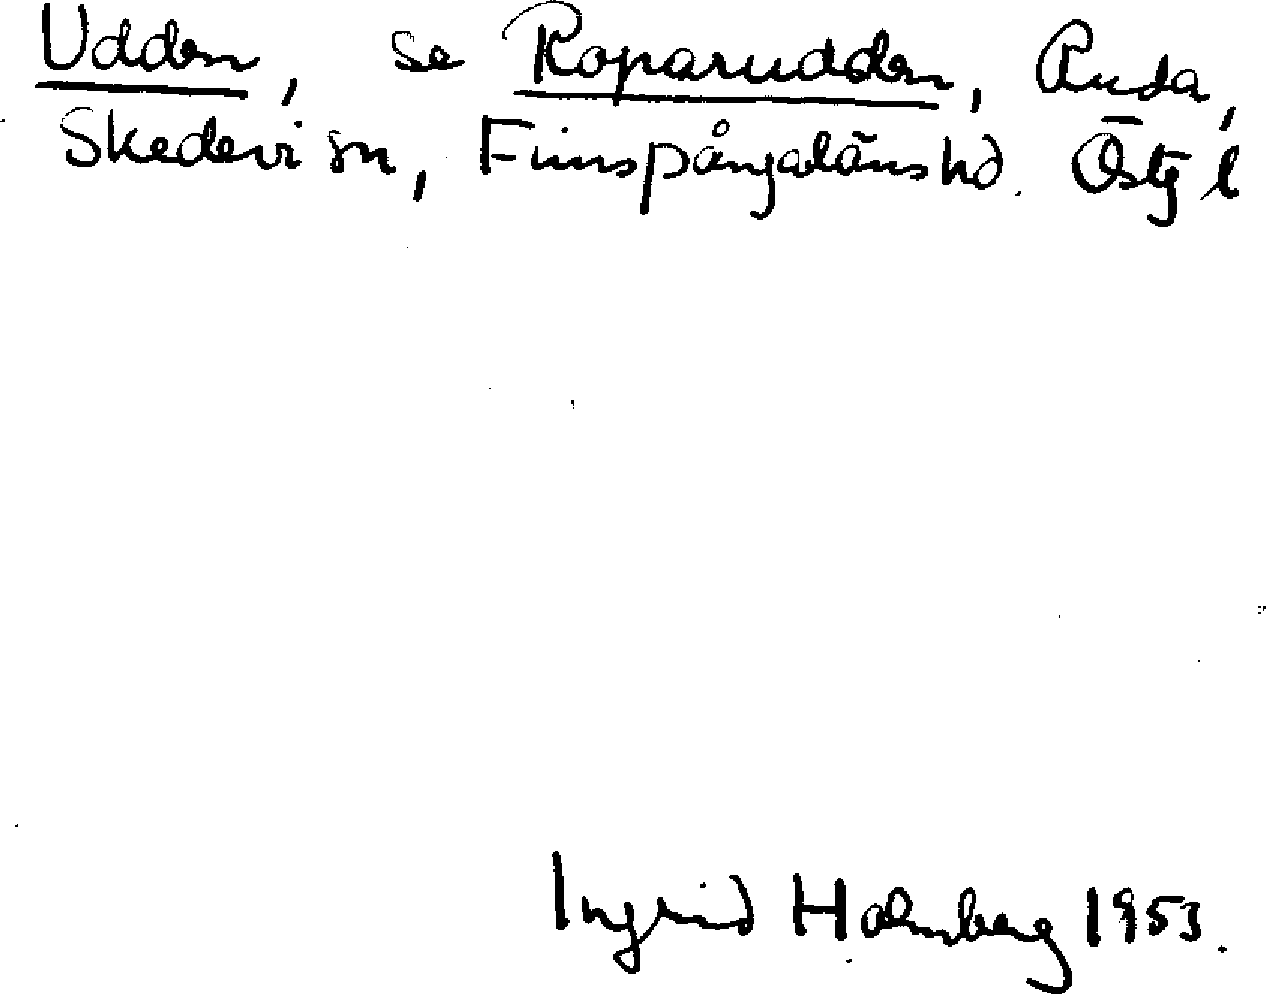 Udden, se Roparudden, Ruda,
Skedevi sn, Finspångalänshd. Östg l
Ingrid Holmberg 1953.